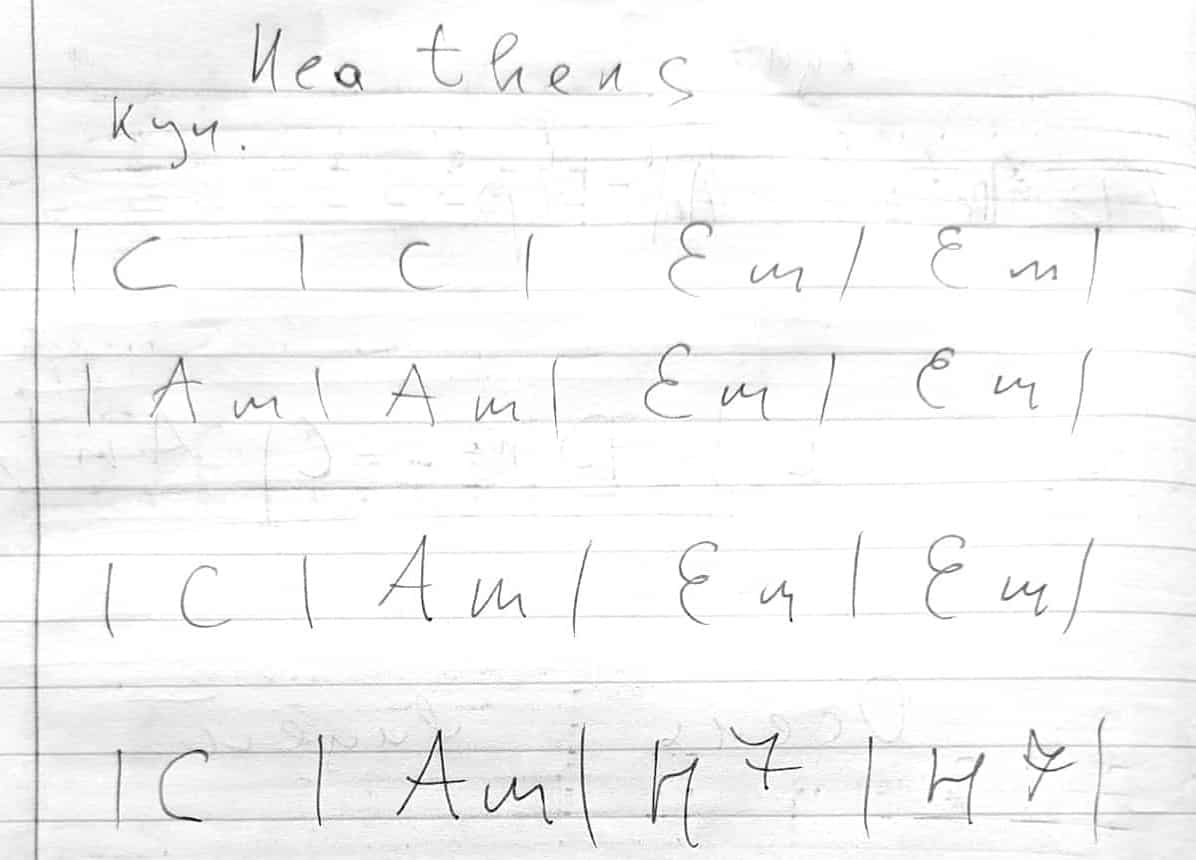 Heathens
Куп.
| C | C | Em | Em |
| Am | Am | Em | Em |
| C | Am | Em | Em |
| C | Am | H7 | H7 |